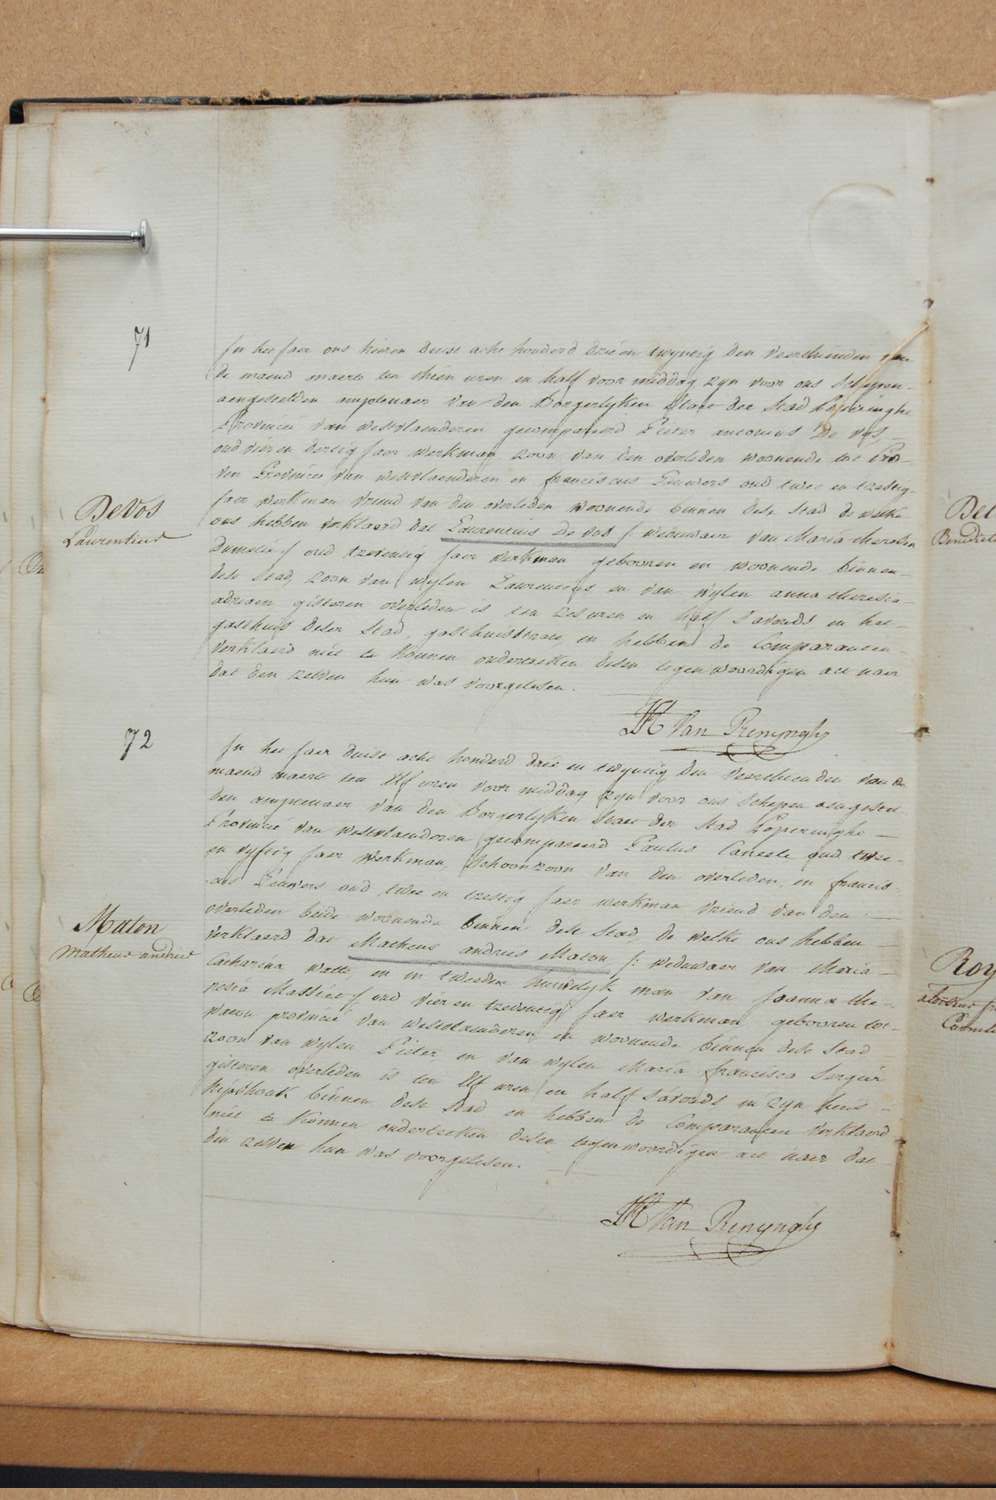 71
In het Jaer ons heeren duise acht honderd drie en twyntig den veerthienden van
de maend maerte ten thien uren en half voor middag zyn voor ons Schepen
aengestelden amptenaer van den Borgerlyken Staet der Stad Poperinghe
Provincie van westvlaenderen gecompareerd Pieter antonius De Vos
oud vier en dertig Jaer werkman zoon van den overleden woonende tot Pro-
ven Provincie van westvlaenderen en franciscus Leuwers oud twee en tzestig
Jaer werkman vriend van den overleden woonende binnen dese Stad de welke
De Vos
Laurentius
ons hebben verklaerd dat Laurentius De vos weduwaer van Maria
oud tzeventig Jaer werkman gebooren en woonende binnen
dese Stad, zoon van wylen Laurentius en van wylen anna theresia
adriaen gisteren overleden is ten zes uren en half s'avonds in het
gasthuis deser Stad, gasthuisstraete, en hebben de Comparanten
verklaerd niet te konnen onderteeken desen tegenwoordigen act naer
dat den zelven hun was voorgelesen.
Van Renynghe
72
In het Jaer duise acht honderd drie en twyntig den veerthienden van de
maend maerte ten Elf uren voor middag zyn voor ons Schepen aengestel-
den amptenaer van den Borgerlyken Staet der Stad Poperinghe
Provincie van westvlaenderen gecompareerd Paulus oud twee
en vyftig Jaer werkman, schoonzoon van den overleden, en francis-
cus Leuwers oud twee en tzestig Jaer werkman vriend van den
overleden beide woonende binnen dese Stad de welke ons hebben
Maton
Matheus andries
verklaerd dat Matheus andries Maton weduwaer van Maria
Catharina en in tweeden huwelyk man van Joanna the-
resia oud vier en tzeventig Jaer werkman gebooren tot
provincie van westvlaenderen, en woonende binnen dese Stad
zoon van wylen Pieter en van wylen Maria francisca
gisteren overleden is ten Elf uren en half s'avonds in zyn huis
binnen dese Stad en hebben de Comparanten verklaerd
niet te konnen onderteeken desen tegenwoordigen act naer dat
den zelven hun was voorgelesen.
Van Renynghe
Roy